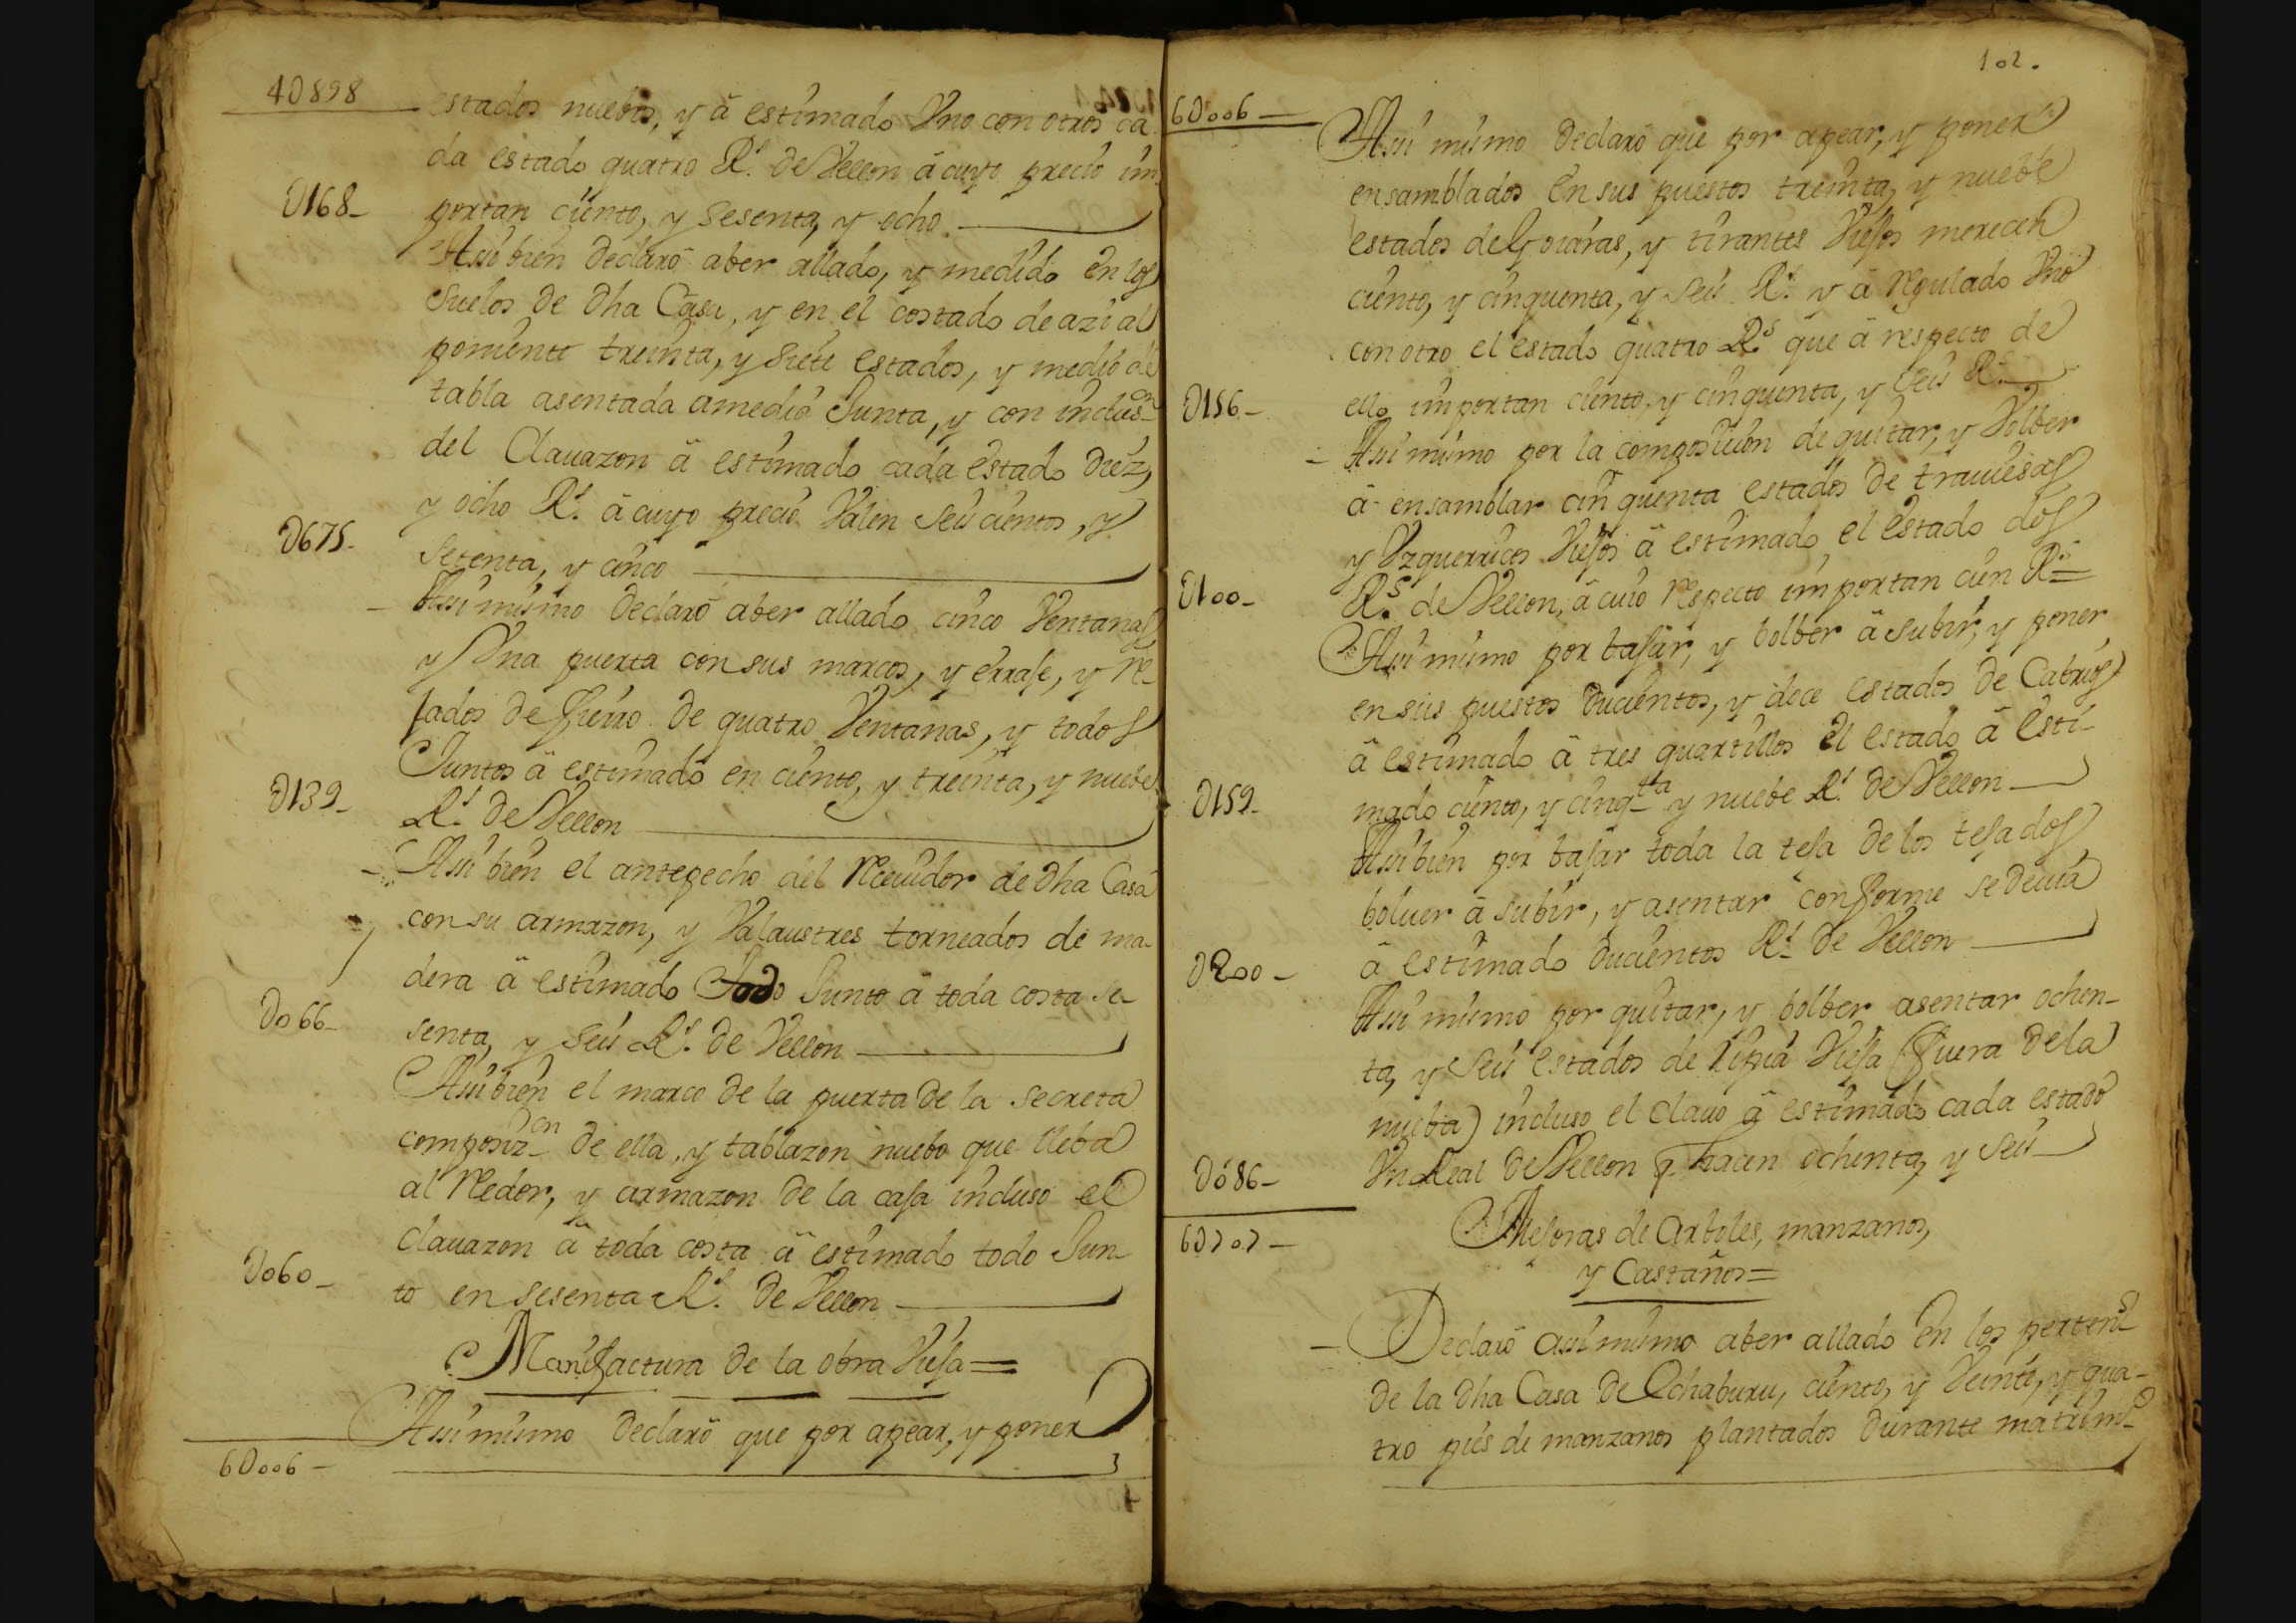 4U898
estados nuebos, y â estimado Vno con otros ca
da estado quatro Rs. de Vellon â cuyo precio im
U168
portan ciento, y sesenta, y ocho
Assi bien declarô aber allado, y medido en los
suelos de dha Casa, y en el costado de azi al
poniente treinta, y siete estados, y medio de
tabla asentada a media Junta, y con incluson
del Clauazon â estimado cada estado diez,
y ocho Rs. â cuyo precio Valen seis cientos, y
U675
setenta, y cinco
Assi mismo declarô aber allado cinco Ventanas
y Vna puerta con sus marcos, y erraje, y re-
jados de fierro de quatro Ventanas, y todos
Juntos â estimado en ciento, y treinta, y nuebe
U139
Rs. de Vellon
Assi bien el antepecho del Receuidor de dha Casa
con su armazon, y Valaustres torneados de ma-
dera â estimado todo Junto â toda costa se-
U066
senta, y seis Rs. de Vellon
Assi bien el marco de la puerta de la secreta
composizon de ella, y tablazon nuebo que lleba
al Rededor, y armazon de la caja incluso el
clauazon â toda costa â estimado todo Jun-
U060
to en sesenta Rs. de Vellon
Manifactura de la obra Vieja =
Assi mismo declarô que por apear, y poner
6U006
102.
6U006
Assi mismo declarô que por apear, y poner
ensamblados en sus puestos treinta, y nuebe
estados de Goiaras, y tirantes Viejos merecen
ciento, y cinquenta, y seis Rs. y â regulado Vno
con otro el estado quatro Rs que â respecto de
U156
ello importan ciento, y cinquenta, y seis Rs.
Assi mismo por la composicion de quitar, y Volber
â ensamblar cinquenta estados de trauiesas
y Yzquerricos Viejos â estimado el estado dos
U100
Rs. de Vellon, â cuio respecto importan cien Rs =
Assi mismo por bajar, y bolber â subir, y poner
en sus puestos ducientos, y doce estados de Cabrios
â estimado â tres quartillos el estado â esti-
U159
mado ciento, y cinqta y nuebe Rs. de Vellon
Assi bien por bajar toda la teja de los tejados
boluer â subir, y asentar conforme se deuia
U200
â estimado ducientos Rs. de Vellon
Assi mismo por quitar, y bolber asentar ochen-
ta, y seis estados de Ripia Vieja (fuera de la
nueba) incluso el clauo â estimado cada estado
U086
Vn Real de Vellon q hacen ochenta, y seis
6U707
Mejoras de Arboles, manzanos,
y Castaños =
Declarô assi mismo aber allado en los pertens
de la dha Casa de Echaburu, ciento, y Veinte, y qua-
tro pies de manzanos plantados durante matrimo